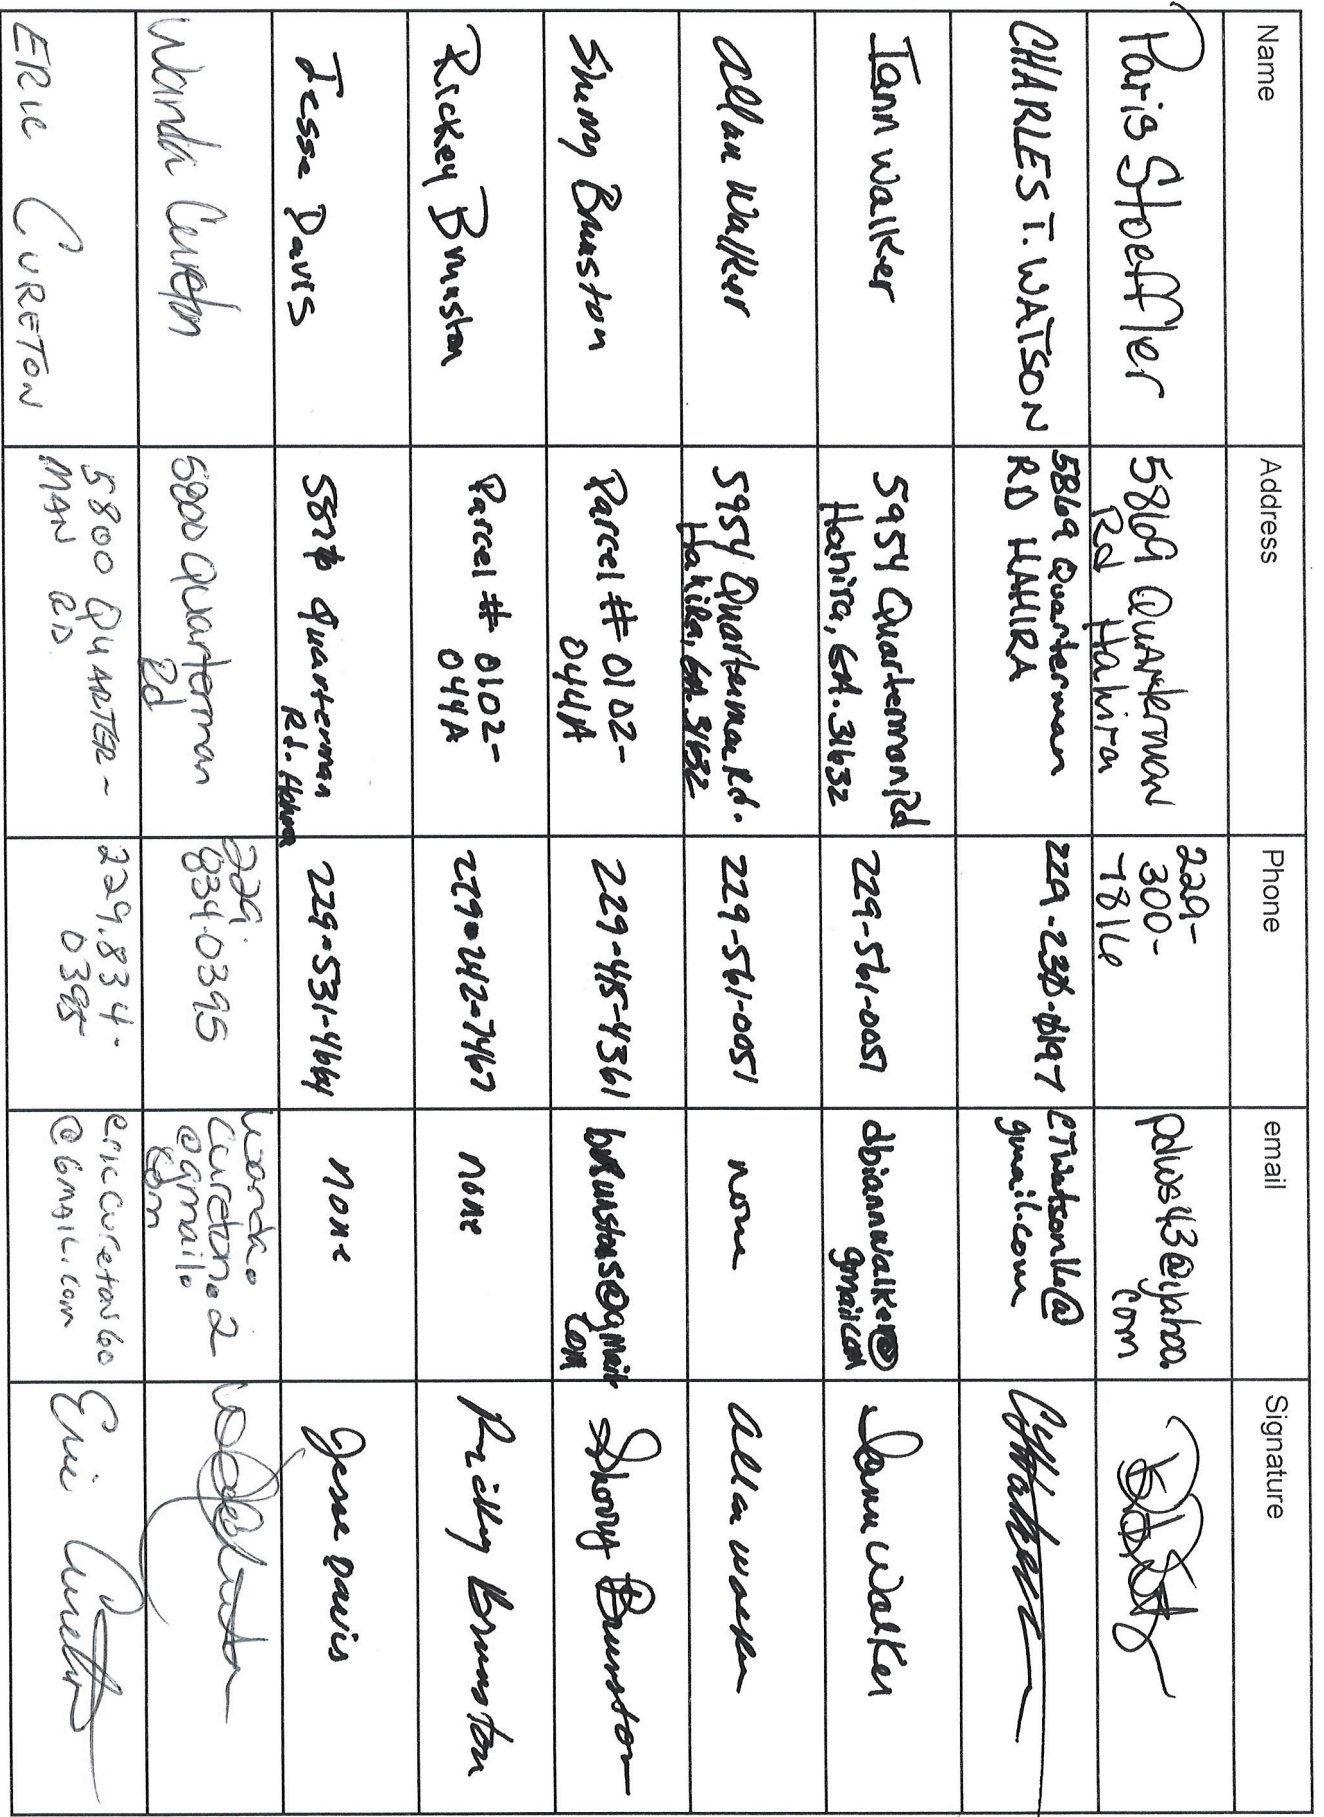 Name Address Phone email Signature
Paris Stoeffler
5869 Quarterman
Rd Hahira
229-
300-
7816
pdws43@yahoo.
com
CHARLES T. WATSON
5869 Quarterman
RD HAHIRA
CTWatson16@
gmail.com
Iann Walker
5954 Quarterman Rd
Hahira, GA. 31632
229-561-0051
dbiannwalker@
gmail.com
Iann Walker
Allan Walker
5954 Quarterman Rd.
Hahira, GA. 31632
229-561-0051
none
Allan Walker
Sherry Brunston
Parcel # 0102-
044A
229-415-4361
brunstons@gmail.
com
Sherry Brunston
Rickey Brunston
Parcel # 0102-
044A
229-242-7467
none
Ricky Brunston
Jesse Davis
Quarterman
Rd. Hahira
229-531-4664
none
Jesse Davis
Wanda Cureton
5800 Quarterman
Rd
229.
834.0395
wanda.
cureton.2
@gmail.
com
ERIC CURETON
5800 QUARTER-
MAN RD
229.834.
0395
ericcureton60
@GMAIL.com
Eric Cureton